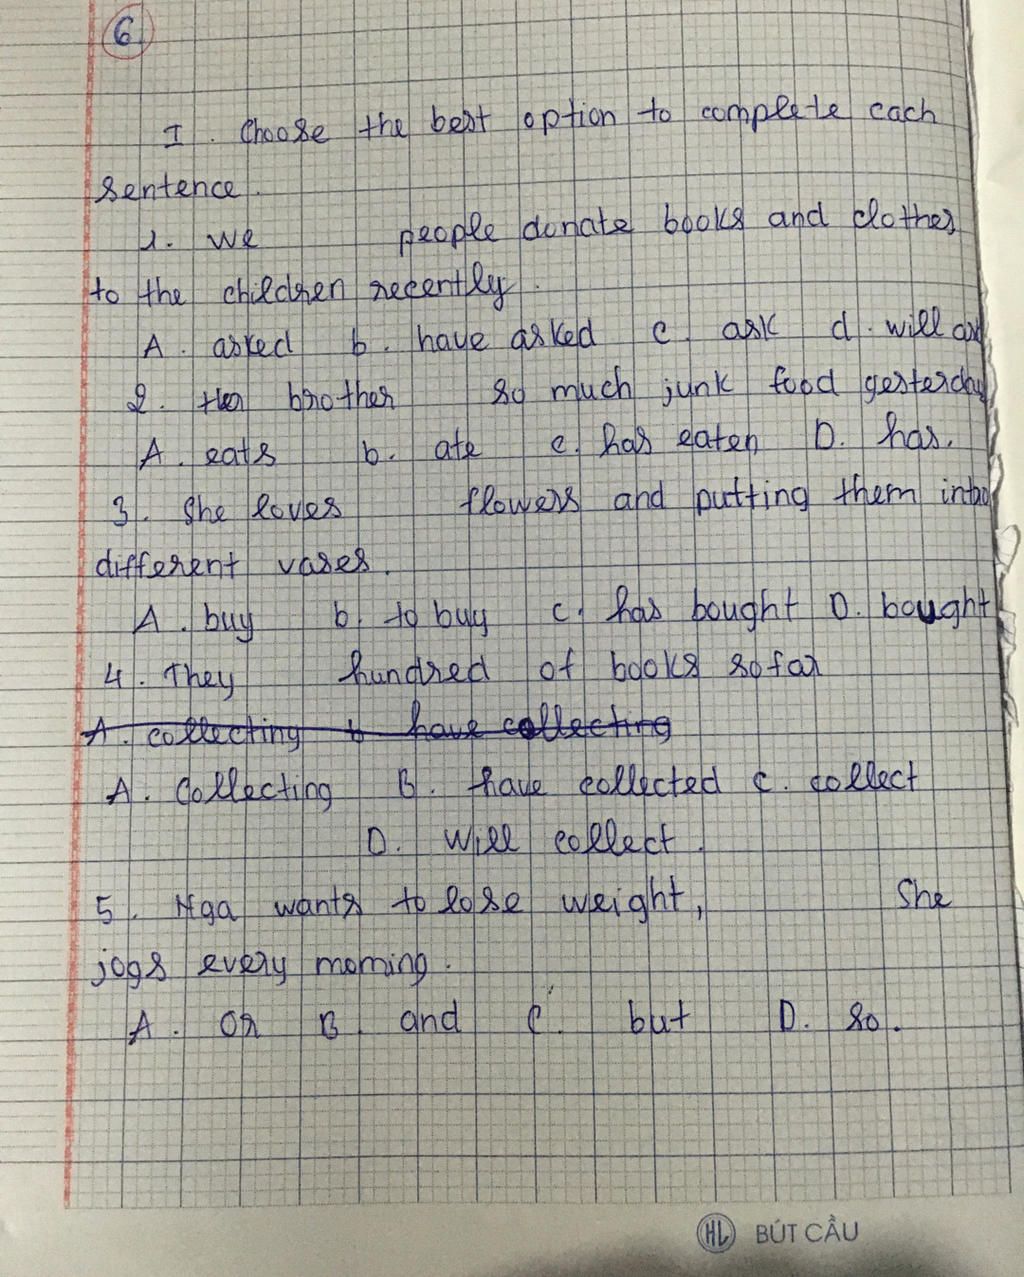 6
I. Choose the best option to complete each
sentence.
1. We people donate books and clothes
to the children recently.
A. asked b. have asked c. ask d. will
2. Her brother so much junk food yesterday
A. eats b. ate c. has eaten D. has.
3. She loves flowers and putting them into
different vases.
A. buy b. to buy c. has bought D. bought
4. They hundred of books so far
A. collecting b have collecting
A. Collecting B. have collected c. collect
D. Will collect.
5. Nga wants to lose weight, She
jogs every morning.
A. or B. and C. but D. so.
HL BÚT CẦU